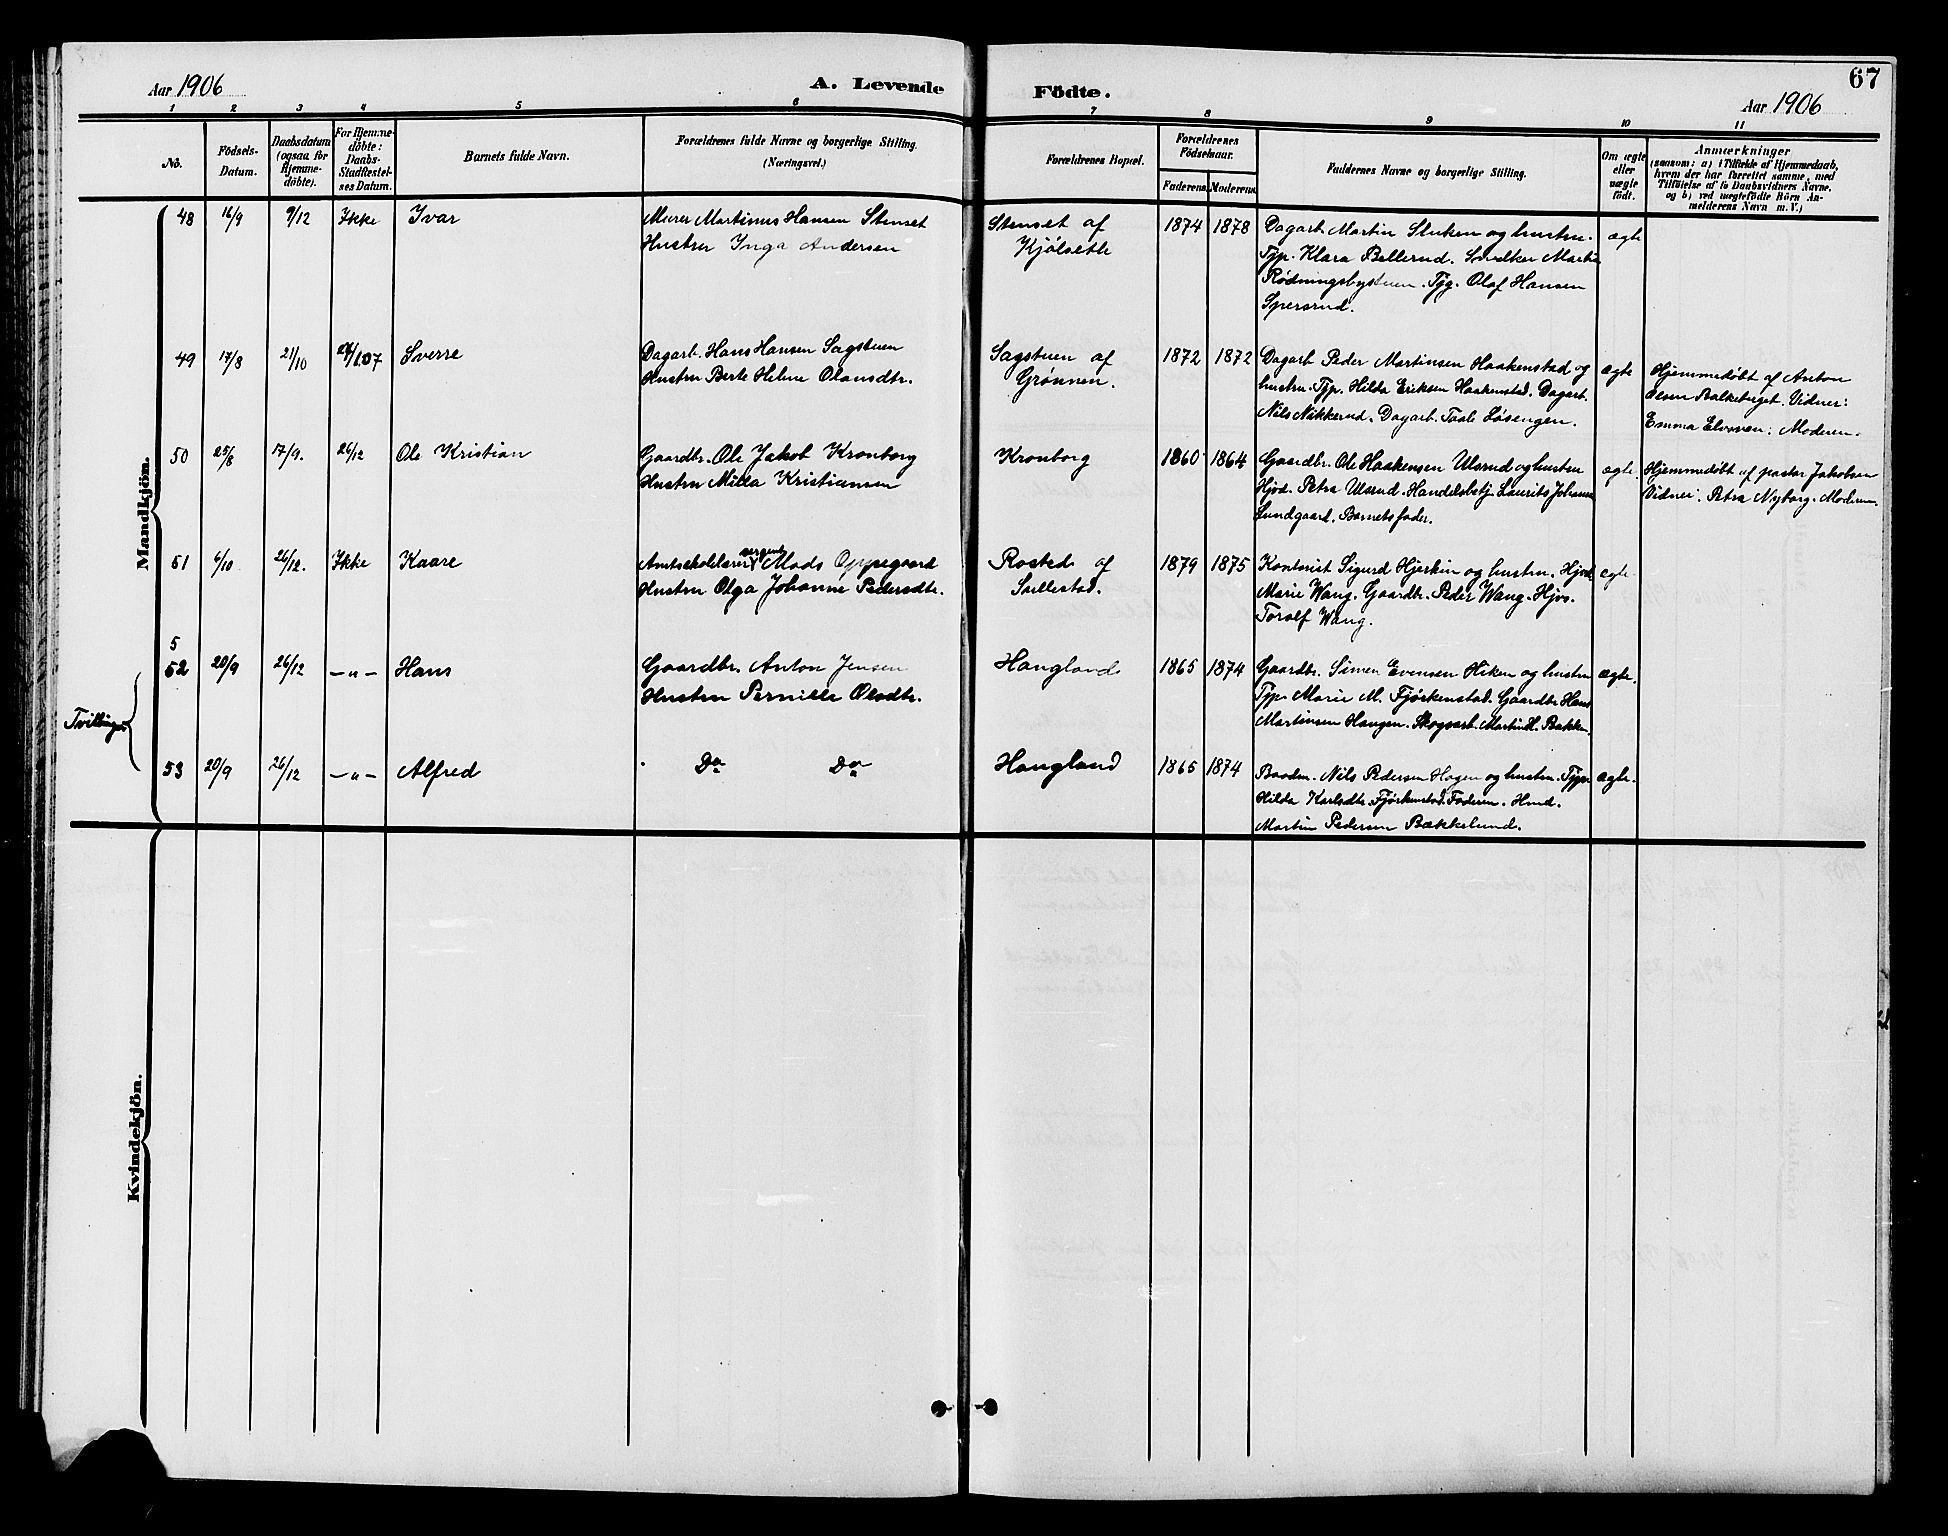 Aar 1906
A. Levende
Födte.
67
Aar 1906
1 2 3 4 5 6 7 8 9 10 11
No.
Födsels-
Datum.
Daabsdatum
(ogsaa for
Hjemme-
döbte).
For Hjemme-
döbte:
Daabs-
Stadfæstel-
ses Datum.
Barnets fulde Navn.
Forældrenes fulde Navne og borgerlige Stilling.
(Næringsvei.)
Forældrenes Bopæl.
Forældrenes
Födselsaar.
Faderens.
Moderens.
Faddernes Navne og borgerlige Stilling.
Om ægte
eller
uægte
födt.
Anmærkninger
(saasom: a) i Tilfælde af Hjemmedaab,
hvem der har forrettet samme, med
Tilföielse af to Daabsvidners Navne,
og b) ved uægtefödte Börn An-
melderens Navn m. V.)
Mandkjön.
48 16/9 9/12 Ikke Ivar
Murer Martinus Hansen Stenset
Hustru Inga Andersen
Stenset af
Kjölseth
1874 1878
Dagarb. Martin og hustru.
Typ. Klara Bellerud. Martin
Rødningsbystuen. Tjg. Olaf Hansen
Spersrud.
ægte
49 17/8 21/10 Sverre
Dagarb. Hans Hansen Sagstuen
Hustru Berte Helene Olausdtr.
Sagstuen af
Grönnen.
1872 1872
Dagarb. Peder Martinsen Haakenstad og
hustru. Typ. Hilda Eriksen Haakenstad. Dagarb.
Nils Nikkerud. Dagarb. Løsengen.
ægte
Hjemmedøbt af Anton
Olsen Balkeberget. Vidner:
Emma Elvmoen. Moderen.
50 25/8 17/9. 26/12 Ole Kristian
Gaardbr. Ole Jakob Kronborg
Hustru Milla Kristiansen
Kronborg
1860 1864
Gaardbr. Ole Haakensen Ulsrud og hustru
Hjvd. Petra Ulsrud. Handelsbetj. Laurits Johansen
Lundgaard. Barnets fader.
ægte.
Hjemmedøbt af pastor Jakobsen
Vidner: Petra Nyborg. Moderen
51 6/10 26/12. Ikke Kaare
Amtsskolelærer sergent Mads Oppegaard
Hustru Olga Johanne Pedersdtr.
Rosted af
Sillestad.
1879 1875
Kontorist Sigurd Hjerkin og hustru. Hjvd.
Marie Wang. Gaardbr. Peder Wang. Hjvs.
Torolf Wang.
ægte.
5
52 20/9 26/12 -"- Hans
Gaardbr. Anton Jensen
Hustru Pernille Olsdtr.
Haugland
1865 1874
Gaardbr. Simen Evensen Hiken og hustru
Typ. Marie M. Fjørkenstad. Gaardbr. Hans
Martinsen Haugen. Skogsarb. Martin H. Bakken.
ægte.
Tvillinger
53 20/9 26/12 -"- Alfred
Do Do
Haugland
1865 1874
Baadm. Nils Pedersen Hagen og hustru. Typ.
Hilda Karlsdtr. Fjørkenstad. Faderen. Hmd.
Martin Pedersen Bækkelund.
ægte.
Kvindekjön.